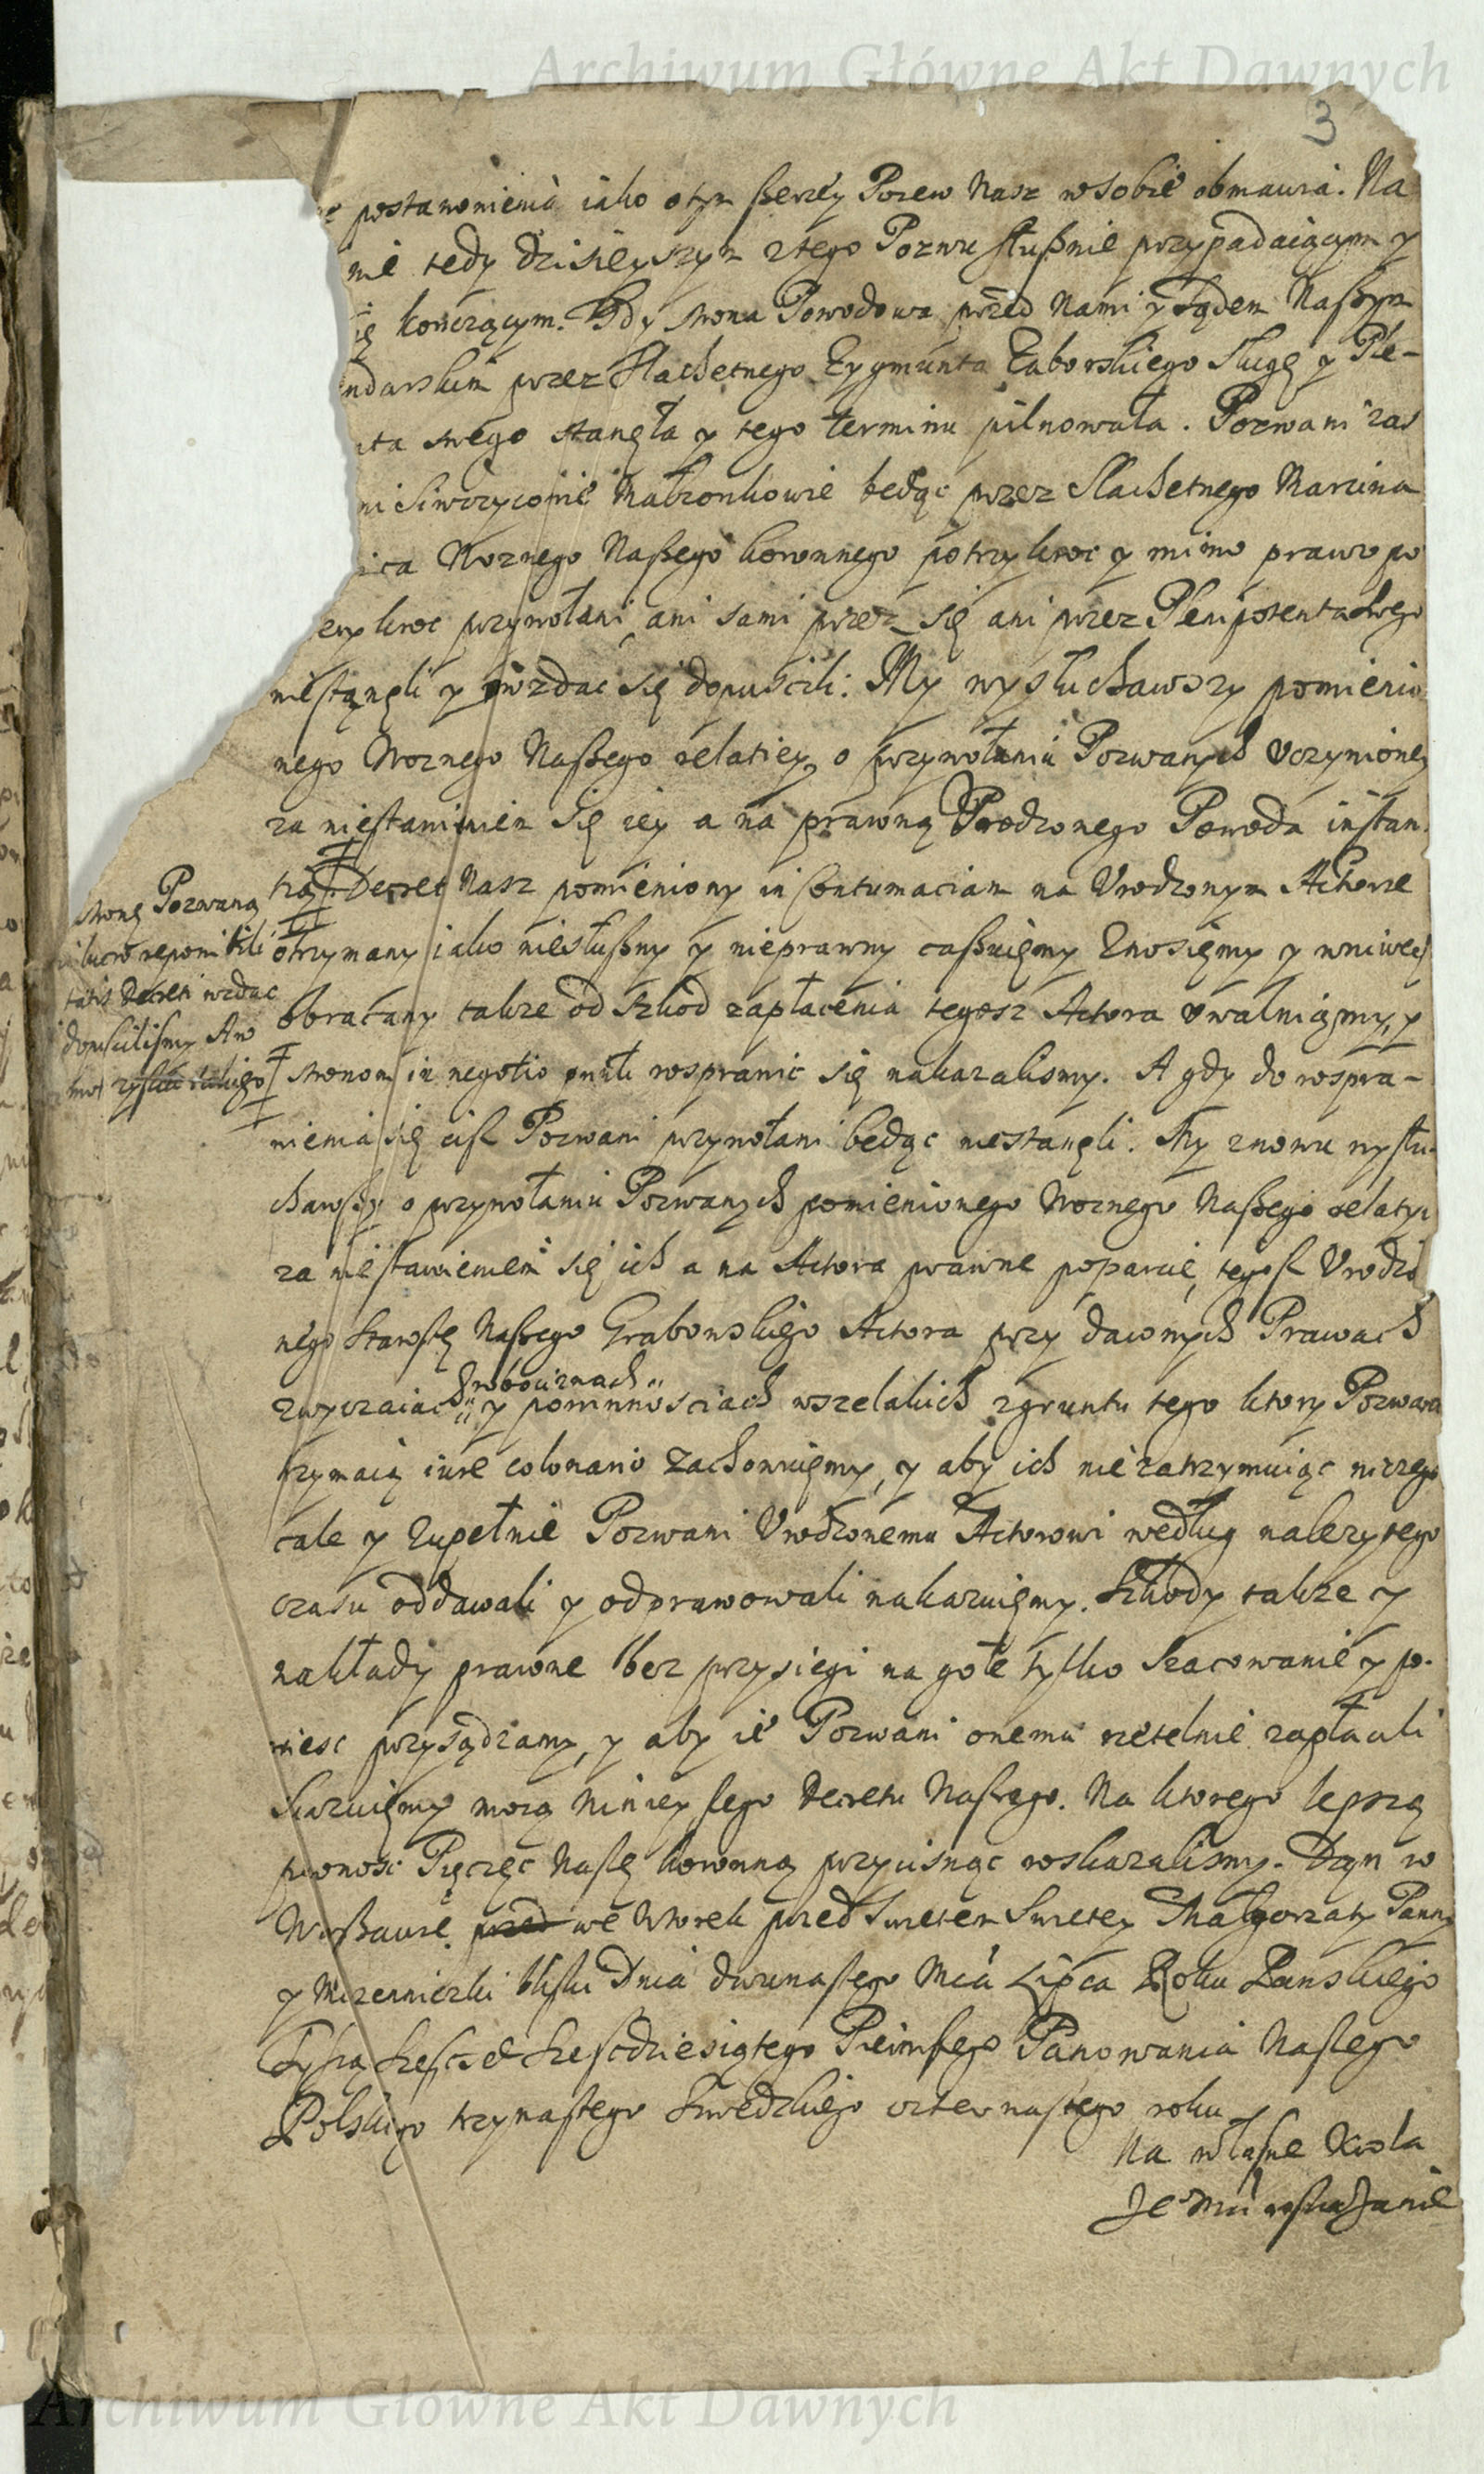 Archiwum Główne Akt Dawnych
3
postanowienia iako otym szerzey Pozew Nasz wsobie obmawia. Na
nie tedy dzisieyszym ztego Pozwu słusznie przypadaiącym y
się konczącym. Gdy strona Powodowa przed Nami y Sądem Naszym
ndarskim przez Slachetnego Zygmunta Zaborskiego Sługę y Ple-
ta swego stanęła y tego terminu pilnowała. Pozwani zas
Małzonkowie będąc przez Slachetnego Marcina
Woznego Naszego koronnego potrzykroc y mimo prawo po
kroc przywołani, ani sami przez się ani przez Plenipotenta swego
niestanęli y wzdac się dopuscili. My wysłuchawszy pomienio
nego Woznego Naszego relatiey o przywołaniu Pozwanych Vczynioney
za niestawieniem się iey a na prawną Vrodzonego Powoda instan
tią Decret Nasz pomieniony in Contumaciam na Vrodzonym Aktorze
otrzymany iako niesłuszny y nieprawny cassuięmy Znosięmy y wniwecz
obracamy takze od szkod zapłacenia tegosz Actora Vwalniamy, y
stronom in negotio rosprawic się nakazalismy. A gdy do rospra-
wienia się cisz Pozwani przywołani będąc niestanęli. My znowu wysłu-
chawszy o przywołaniu Pozwanych pomienionego Woznego Naszego relatyi
za niestawieniem się ich a na Actora prawne poparcie, tegosz Vrodzo
nego Starostę Naszego Grabowskiego Actora przy dawnych Prawach
robociznach
zwyczaiach y powinnosciach wszelakich zgruntu tego ktory Pozwani
trzymaią iure colonario zachowuięmy, y aby ich niezatrzymuiąc niczego
cale y Zupełnie Pozwani Vrodzonemu Actorowi według nalezytego
czasu oddawali y odprawowali nakazuięmy. Szkody takze y
nakłady prawne bez przysięgi na gołe tylko szacowanie y po-
wiesc przysądzamy, y aby ie Pozwani onemu rzetelnie zapłacili
skazuięmy mocą ninieyszego Decretu Naszego. Na ktorego lepszą
pewnosc Pięczęc Naszę koronną przycisnąc roskazalismy. Dan w
Warszawie przed we Wtorek przed Swietem Swietey Małgorzaty Panny
y Męczenniczki blisko Dnia dwunastego Mca Lipca Roku Panskiego
Tysiąc Szescset Szescdziesiątego Pierwszego Panowania Naszego
Polskiego trzynastego Szwedzkiego czternastego roku
Na własne Krola
Je Mci roskazanie
stronę Pozwaną
in lucro
tatis Decreti wzdac
dopuscilismy A w
zysku
Archiwum Główne Akt Dawnych